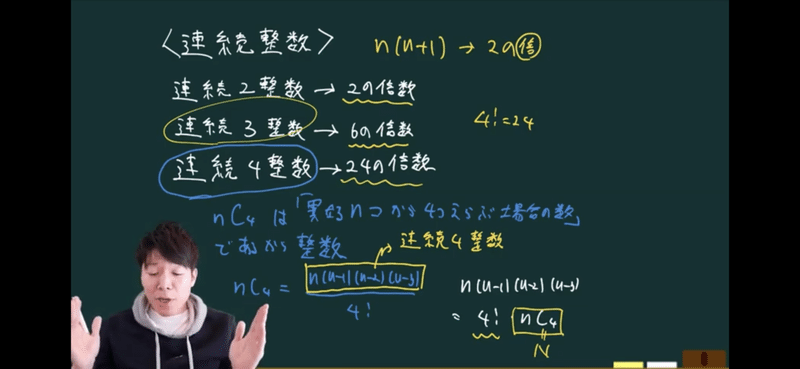 〈連続整数〉 n(n+1) → 2の倍
連続2整数 → 2の倍数
連続3整数 → 6の倍数
4! = 24
連続4整数 → 24の倍数
nC4 は「異なるnコから4コえらぶ場合の数」
であるから 整数
連続4整数
nC4 = n(n-1)(n-2)(n-3) / 4!
n(n-1)(n-2)(n-3)
= 4! nC4
N